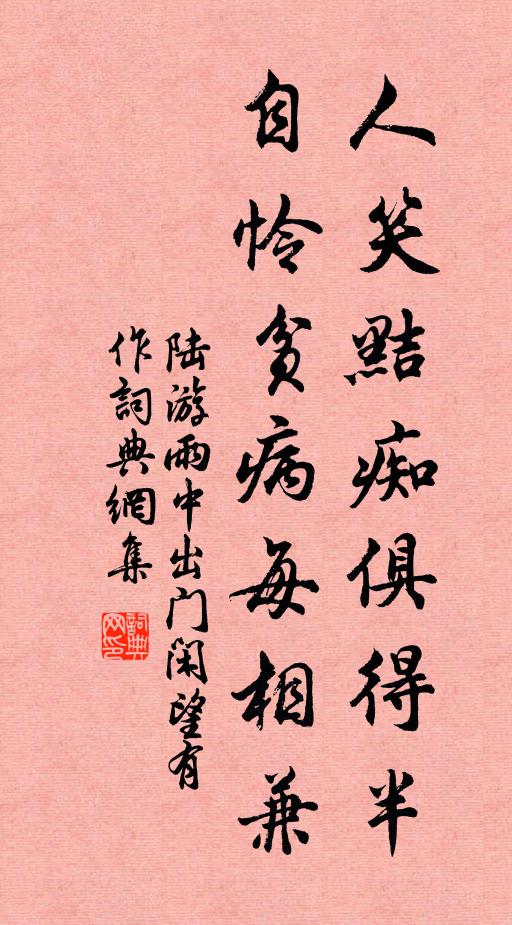 人笑點痴俱得半
自怜貧病每相兼
陆游雨中出门闲望有
作詞典網集
詞典网印